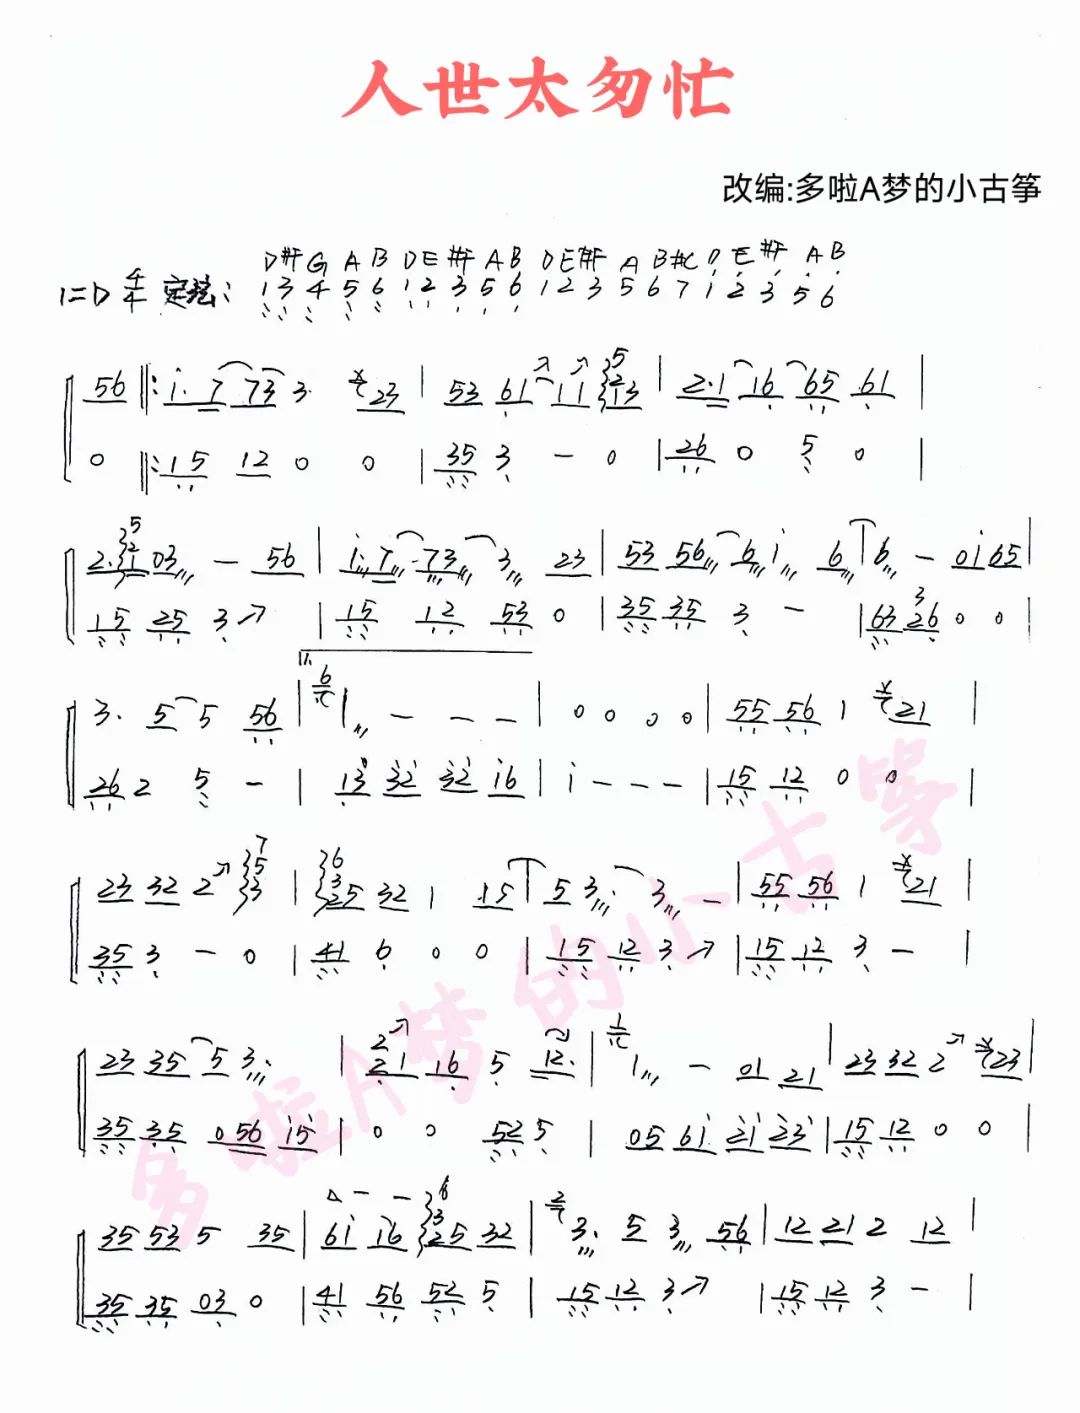 人世太匆忙
改编:多啦A梦的小古筝
D #F G A B D E #F A B D E #F A B #C D E #F A B
1=D 4/4 定弦: 1 3 4 5 6 1 2 3 5 6 1 2 3 5 6 7 1 2 3 5 6
56 ‖: i. 7 73 3 23 | 53 61 11 13 | 2.1 16 65 61 |
0 ‖: 15 12 0 0 | 35 3 - 0 | 26 0 5 0 |
2. 1 03 - 56 | i. 7 73 3 23 | 53 56 6 i 6 6 - 0i65 |
15 25 3 | 15 12 53 0 | 35 35 3 - | 63 26 0 0 |
3. 5 5 56 | 1 - - - | 0 0 0 0 | 55 56 1 21 |
26 2 5 - | 13 32 32 16 | i - - - | 15 12 0 0 |
23 32 2 | 25 32 1 15 | 5 3 3 - | 55 56 1 21 |
35 3 - 0 | 41 6 0 0 | 15 12 3 | 15 12 3 - |
23 35 5 3. | 21 16 5 12. | 1 - 01 21 | 23 32 2 23 |
35 35 056 15 | 0 0 52 5 | 05 61 21 23 | 15 12 0 0 |
35 53 5 35 | 61 16 25 32 | 3. 5 3 56 | 12 21 2 12 |
35 35 03 0 | 41 56 52 5 | 15 12 3 | 15 12 3 - |
多啦A梦的小古筝